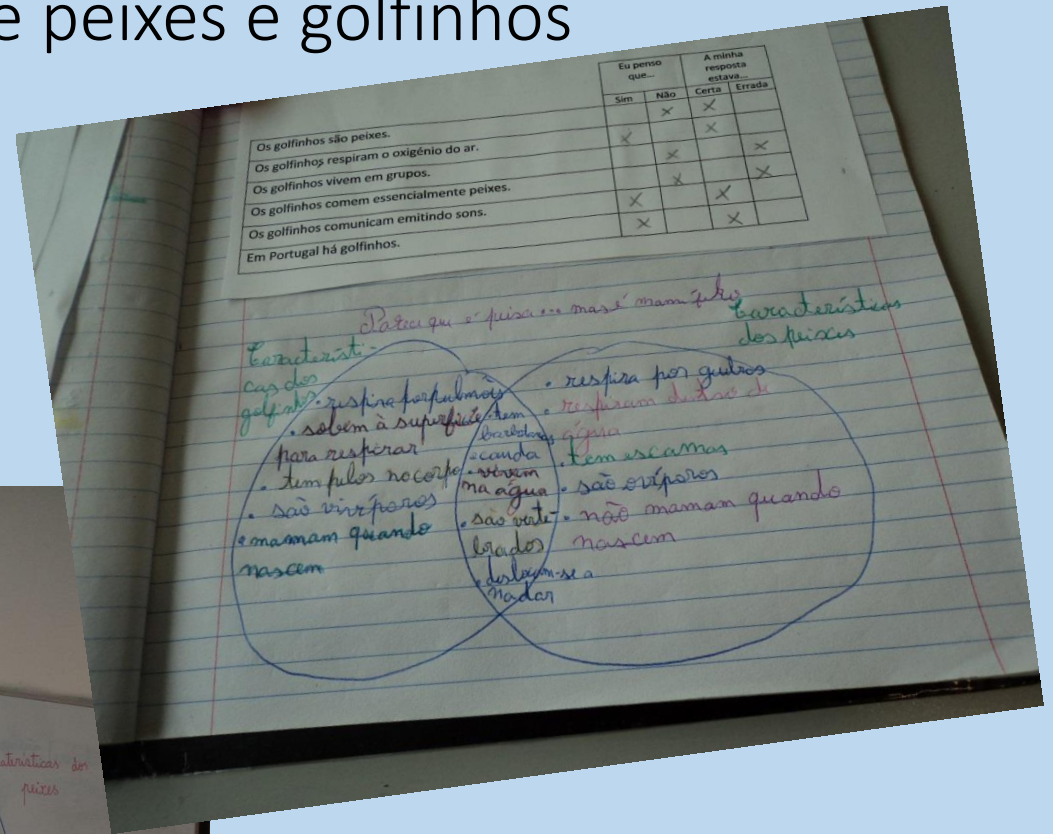 e peixes e golfinhos
Eu penso que...
A minha resposta estava...
Sim Não Certa Errada
Os golfinhos são peixes. x x
Os golfinhos respiram o oxigénio do ar. x x
Os golfinhos vivem em grupos. x x
Os golfinhos comem essencialmente peixes. x x
Os golfinhos comunicam emitindo sons. x x
Em Portugal há golfinhos. x x
Parece que é peixe... mas é mamífero
Característi-
cas dos
golfinhos
• respira por pulmões
• sobem à superfície
para respirar
• tem pelos no corpo
• são vivíparos
• mamam quando
nascem
• tem
barbatanas
• cauda
• vivem
na água
• são verte-
brados
• deslocam-se a
nadar
Características
dos peixes
• respira por guelras
• respiram dentro de
água
• tem escamas
• são ovíparos
• não mamam quando
nascem
dos
peixes